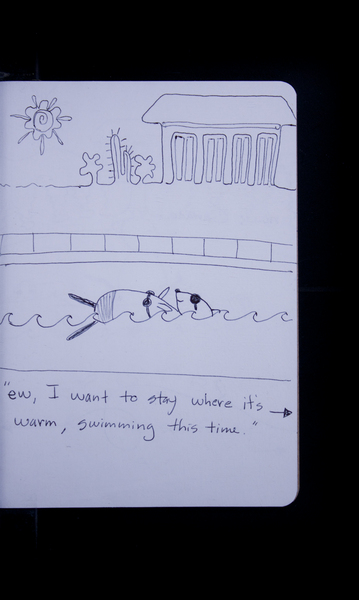 "ew, I want to stay where it's
warm, swimming this time."